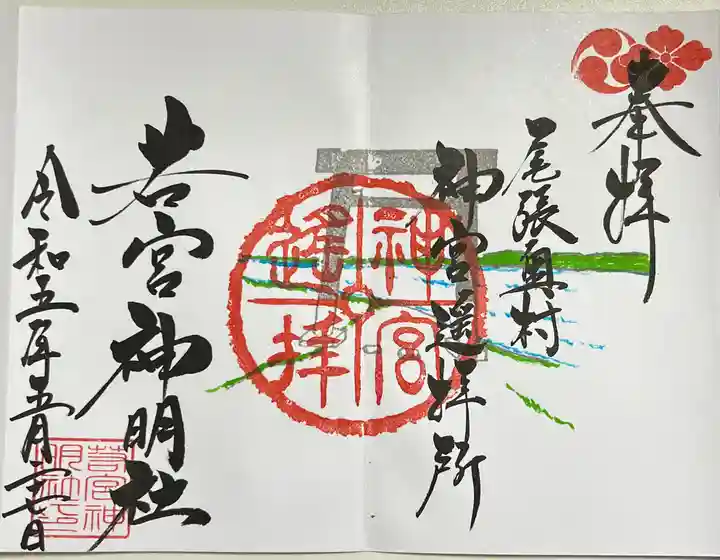 奉拝
尾張奥村
神宮遥拝所
神宮遥拝
若宮神明社
令和五年五月二十七日
若宮神明社印